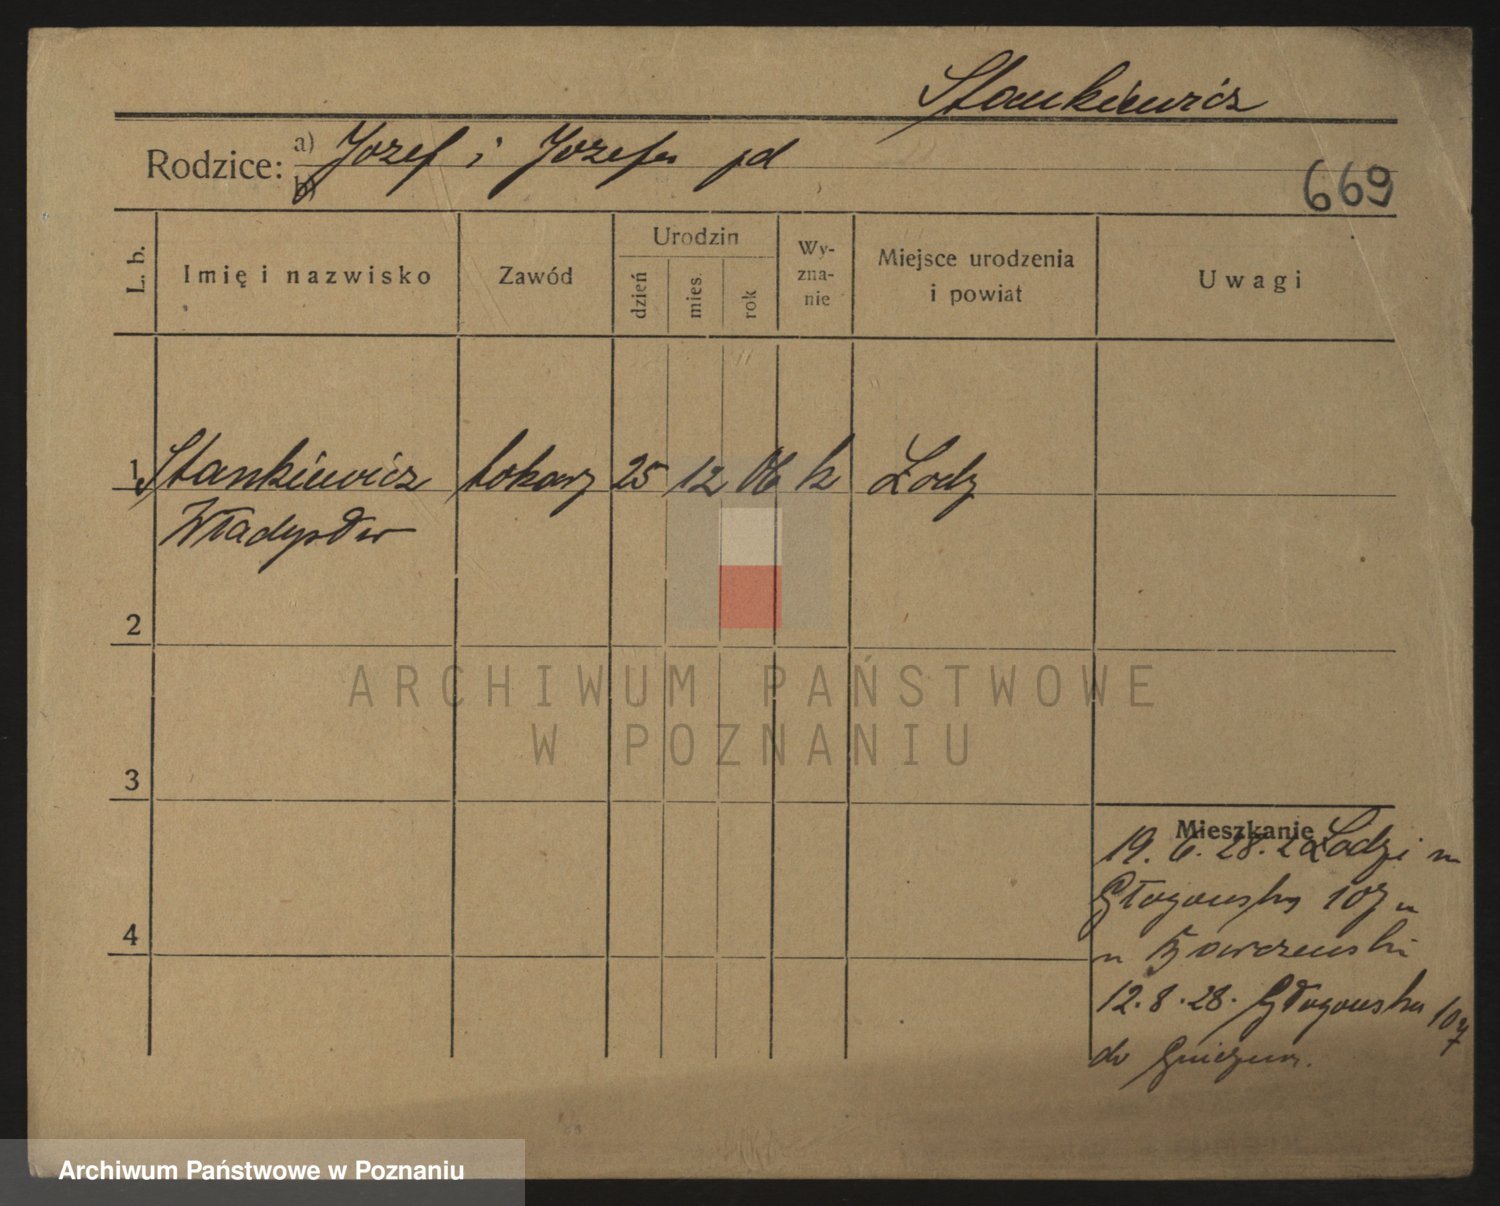 Stankiewicz
Rodzice:
a) Jozef i Jozefa
b)
669
L. b.
Imię i nazwisko
Zawód
Urodzin
dzień
mies.
rok
Wy-
zna-
nie
Miejsce urodzenia
i powiat
Uwagi
1 Stankiewicz tokarz 25 12 06 k Łodz
Władysław
2
3
4
Mieszkanie
19. 6. 28. z Łodzi
Głogowska 107
12. 8. 28. Głogowska 107
do Gniezna.
ARCHIWUM PAŃSTWOWE
W POZNANIU
Archiwum Państwowe w Poznaniu